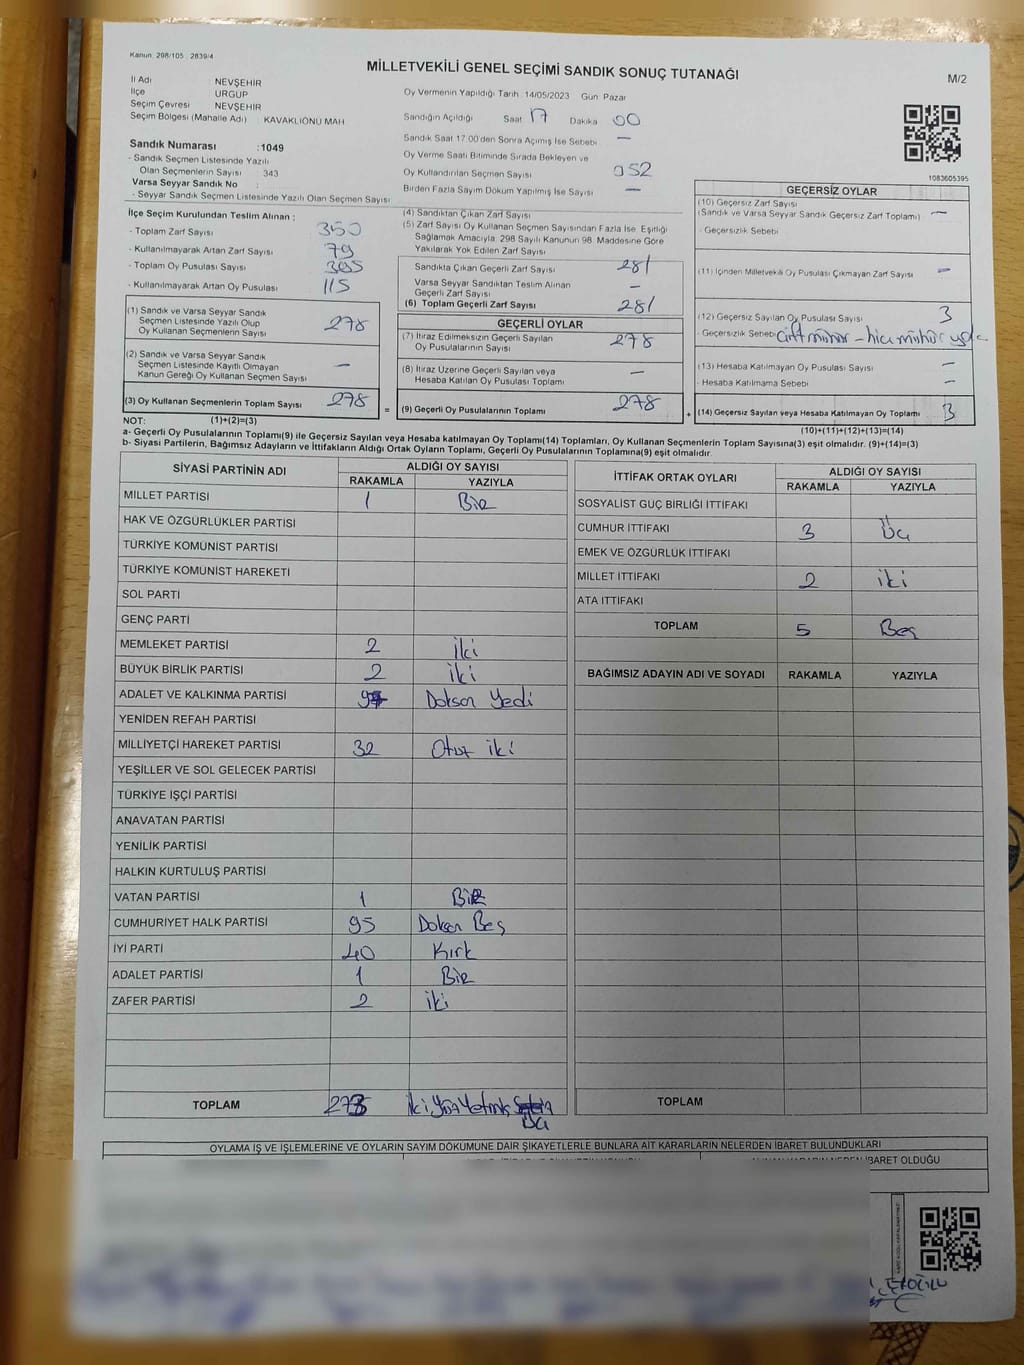 Kanun: 298/105 2839/4
MİLLETVEKİLİ GENEL SEÇİMİ SANDIK SONUÇ TUTANAĞI
M/2
İl Adı NEVŞEHİR
İlçe ÜRGÜP
Seçim Çevresi NEVŞEHİR
Seçim Bölgesi (Mahalle Adı) : KAVAKLIÖNÜ MAH
Sandık Numarası :1049
- Sandık Seçmen Listesinde Yazılı
Olan Seçmenlerin Sayısı : 343
Varsa Seyyar Sandık No
- Seyyar Sandık Seçmen Listesinde Yazılı Olan Seçmen Sayısı
Oy Vermenin Yapıldığı Tarih :14/05/2023 Gün: Pazar
Sandığın Açıldığı Saat 17 Dakika 00
Sandık Saat 17:00'den Sonra Açılmış İse Sebebi —
Oy Verme Saati Bitiminde Sırada Bekleyen ve
Oy Kullandırılan Seçmen Sayısı 052
Birden Fazla Sayım Döküm Yapılmış İse Sayısı —
1083605395
İlçe Seçim Kurulundan Teslim Alınan :
- Toplam Zarf Sayısı 350
- Kullanılmayarak Artan Zarf Sayısı 79
- Toplam Oy Pusulası Sayısı
- Kullanılmayarak Artan Oy Pusulası 115
(1) Sandık ve Varsa Seyyar Sandık
Seçmen Listesinde Yazılı Olup
Oy Kullanan Seçmenlerin Sayısı 278
(2) Sandık ve Varsa Seyyar Sandık
Seçmen Listesinde Kayıtlı Olmayan
Kanun Gereği Oy Kullanan Seçmen Sayısı —
(3) Oy Kullanan Seçmenlerin Toplam Sayısı 278
(1)+(2)=(3)
(4) Sandıktan Çıkan Zarf Sayısı
(5) Zarf Sayısı Oy Kullanan Seçmen Sayısından Fazla İse, Eşitliği
Sağlamak Amacıyla, 298 Sayılı Kanunun 98. Maddesine Göre
Yakılarak Yok Edilen Zarf Sayısı
Sandıkta Çıkan Geçerli Zarf Sayısı 281
Varsa Seyyar Sandıktan Teslim Alınan
Geçerli Zarf Sayısı —
(6) Toplam Geçerli Zarf Sayısı 281
GEÇERLİ OYLAR
(7) İtiraz Edilmeksizin Geçerli Sayılan
Oy Pusulalarının Sayısı 278
(8) İtiraz Üzerine Geçerli Sayılan veya
Hesaba Katılan Oy Pusulası Toplamı —
= (9) Geçerli Oy Pusulalarının Toplamı 278
GEÇERSİZ OYLAR
(10) Geçersiz Zarf Sayısı
(Sandık ve Varsa Seyyar Sandık Geçersiz Zarf Toplamı) —
- Geçersizlik Sebebi
(11) İçinden Milletvekili Oy Pusulası Çıkmayan Zarf Sayısı —
(12) Geçersiz Sayılan Oy Pusulası Sayısı 3
- Geçersizlik Sebebi çift mühür - hiç mühür yok
(13) Hesaba Katılmayan Oy Pusulası Sayısı —
- Hesaba Katılmama Sebebi —
+ (14) Geçersiz Sayılan veya Hesaba Katılmayan Oy Toplamı 3
(10)+(11)+(12)+(13)=(14)
NOT:
a- Geçerli Oy Pusulalarının Toplamı(9) ile Geçersiz Sayılan veya Hesaba katılmayan Oy Toplamı(14) Toplamları, Oy Kullanan Seçmenlerin Toplam Sayısına(3) eşit olmalıdır. (9)+(14)=(3)
b- Siyasi Partilerin, Bağımsız Adayların ve İttifakların Aldığı Ortak Oyların Toplamı, Geçerli Oy Pusulalarının Toplamına(9) eşit olmalıdır.
SİYASİ PARTİNİN ADI ALDIĞI OY SAYISI
RAKAMLA YAZIYLA
MİLLET PARTİSİ 1 Bir
HAK VE ÖZGÜRLÜKLER PARTİSİ
TÜRKİYE KOMÜNİST PARTİSİ
TÜRKİYE KOMÜNİST HAREKETİ
SOL PARTİ
GENÇ PARTİ
MEMLEKET PARTİSİ 2 iki
BÜYÜK BİRLİK PARTİSİ 2 iki
ADALET VE KALKINMA PARTİSİ 97 Doksan Yedi
YENİDEN REFAH PARTİSİ
MİLLİYETÇİ HAREKET PARTİSİ 32 Otuz iki
YEŞİLLER VE SOL GELECEK PARTİSİ
TÜRKİYE İŞÇİ PARTİSİ
ANAVATAN PARTİSİ
YENİLİK PARTİSİ
HALKIN KURTULUŞ PARTİSİ
VATAN PARTİSİ 1 Bir
CUMHURİYET HALK PARTİSİ 95 Doksan Beş
İYİ PARTİ 40 Kırk
ADALET PARTİSİ 1 Bir
ZAFER PARTİSİ 2 iki
TOPLAM 273 iki Yüz Yetmiş
Üç
İTTİFAK ORTAK OYLARI ALDIĞI OY SAYISI
RAKAMLA YAZIYLA
SOSYALİST GÜÇ BİRLİĞİ İTTİFAKI
CUMHUR İTTİFAKI 3 Üç
EMEK VE ÖZGÜRLÜK İTTİFAKI
MİLLET İTTİFAKI 2 iki
ATA İTTİFAKI
TOPLAM 5 Beş
BAĞIMSIZ ADAYIN ADI VE SOYADI RAKAMLA YAZIYLA
TOPLAM
OYLAMA İŞ VE İŞLEMLERİNE VE OYLARIN SAYIM DÖKÜMÜNE DAİR ŞİKAYETLERLE BUNLARA AİT KARARLARIN NELERDEN İBARET BULUNDUKLARI
İBARET OLDUĞU